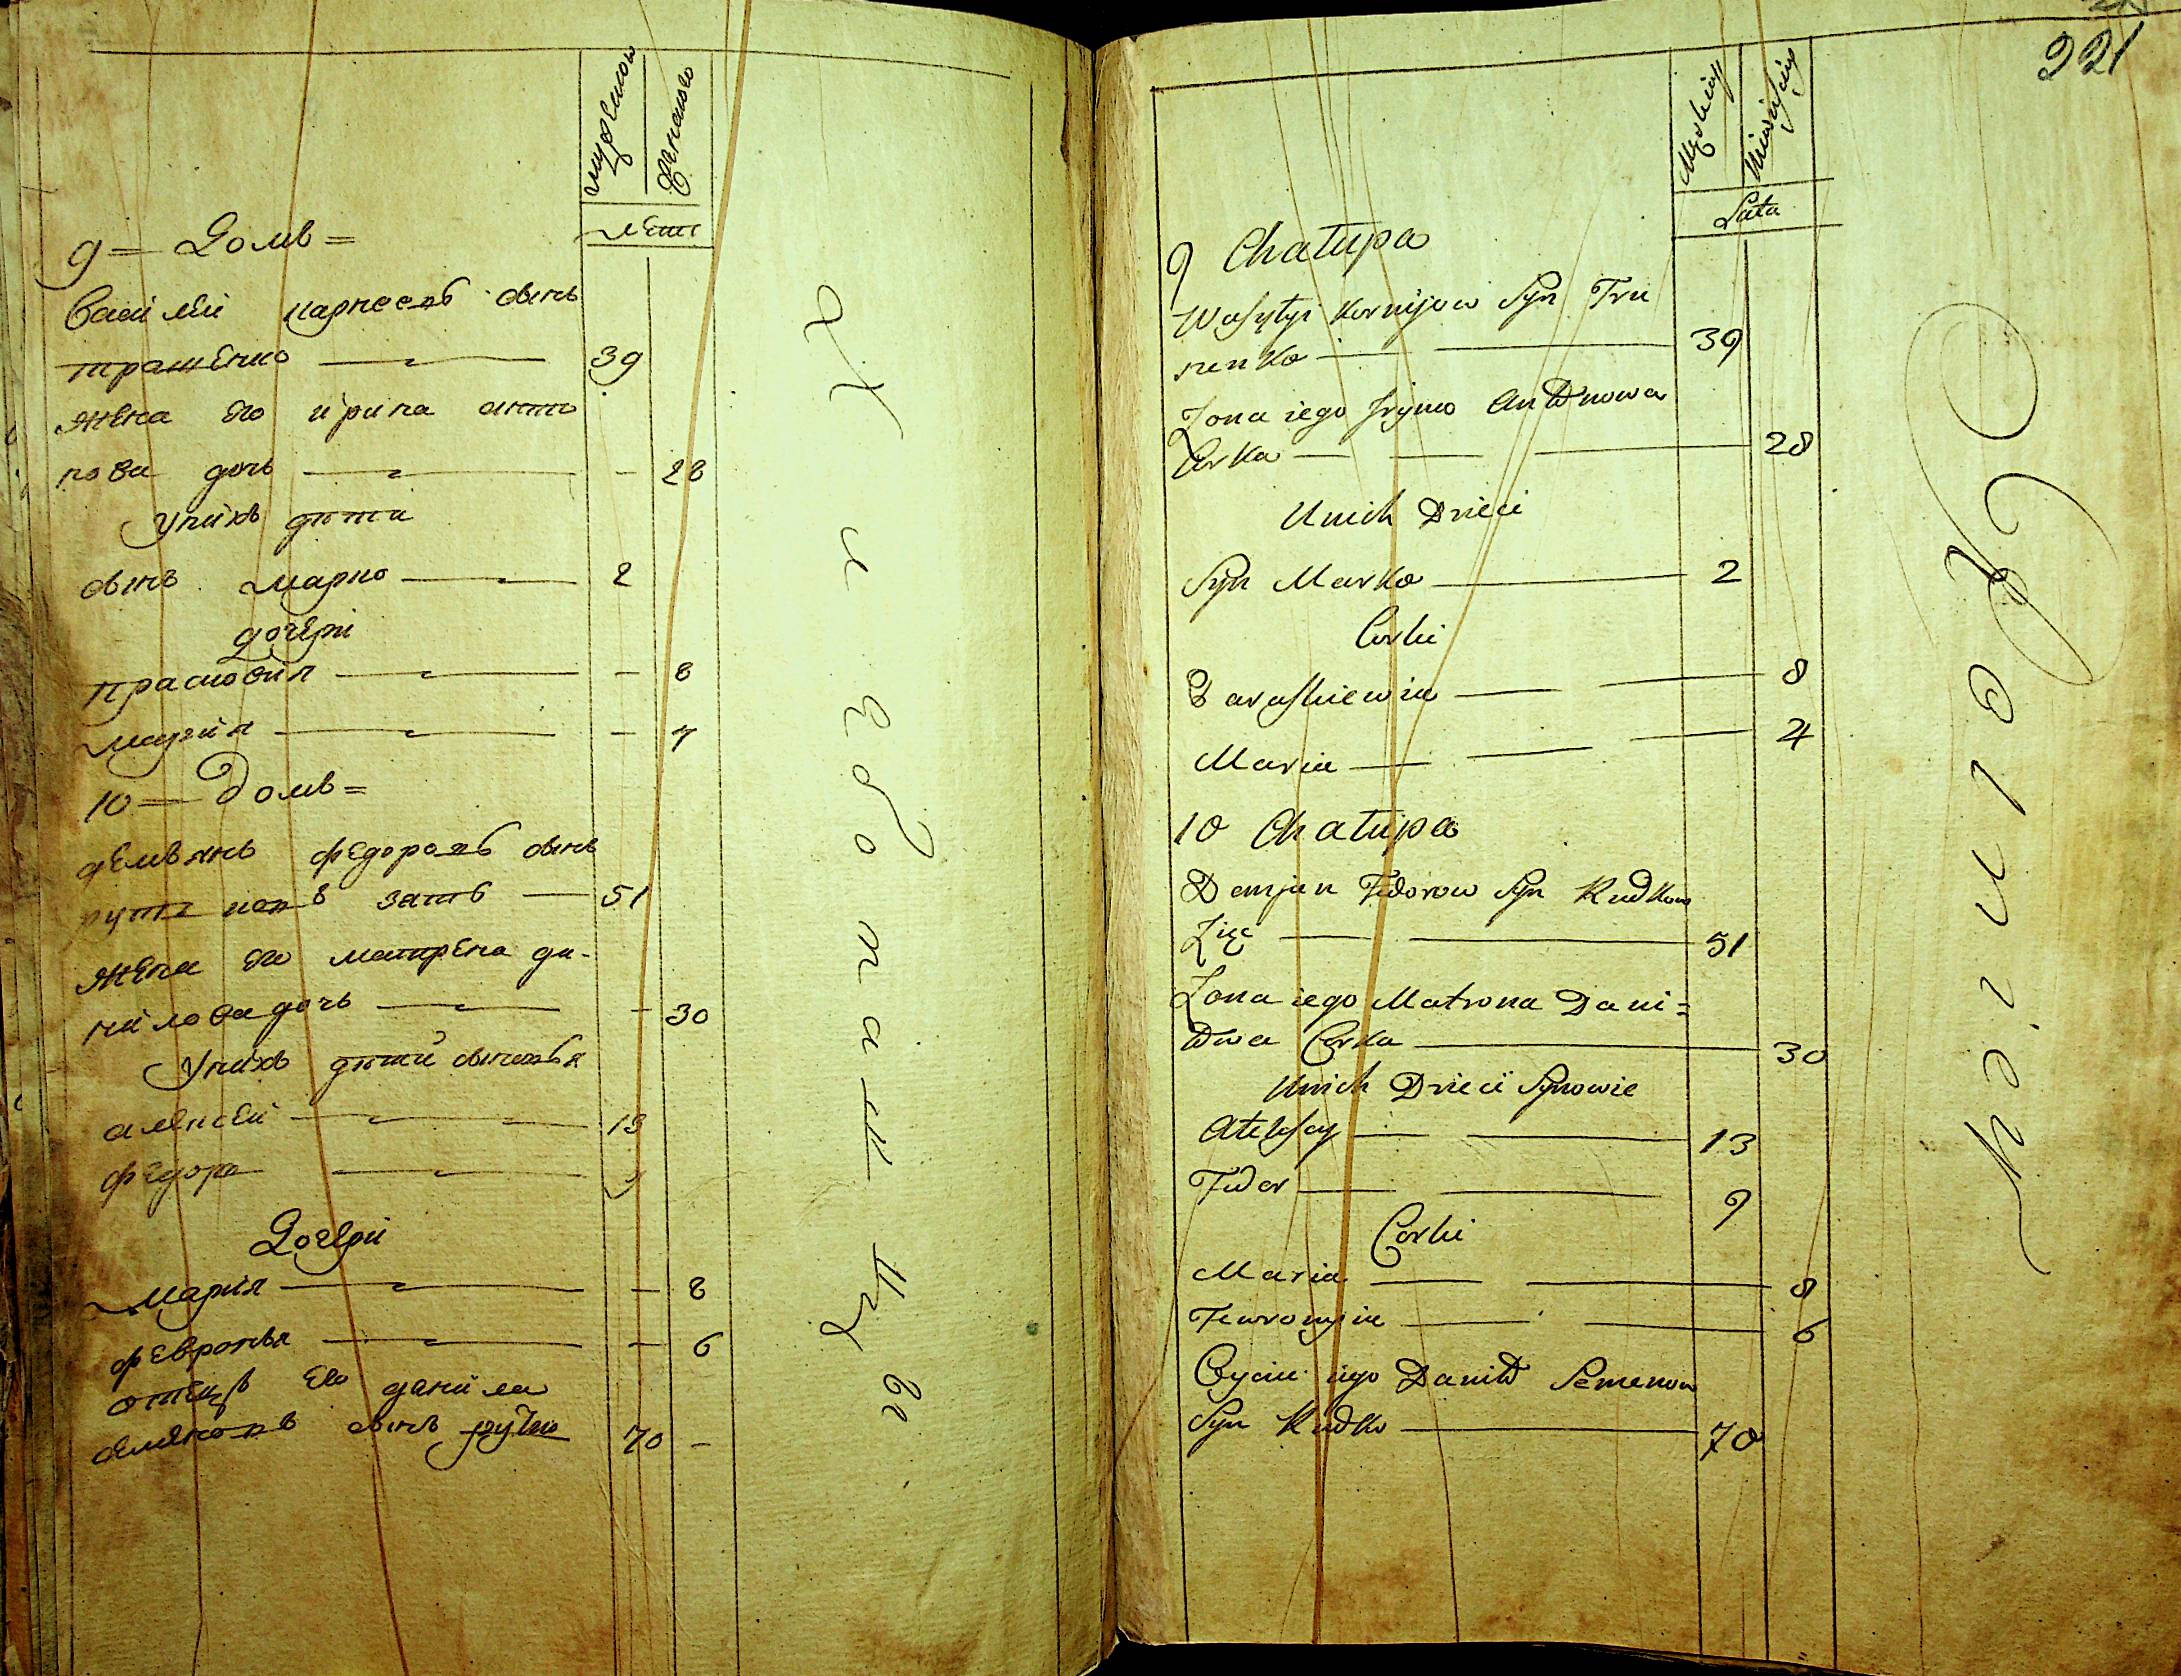 мужеска
женска
летъ
9 = Домъ =
Василий карпеевъ сынъ
трашенко 39
жена его ирина анто
нова дочь - 28
У нихъ дети
сынъ марко 2
дочери
прасковия - 8
Мария - 4
10 = Домъ =
демьянъ федоровъ сынъ
зять 51
жена его матрена да-
нилова дочь - 30
У нихъ дети сыновья
алексей 13
федоръ 9
Дочери
Мария - 8
февронья - 6
отецъ его данила
семеновъ сынъ рутко 70 -
221
Męskiey
Niewieściey
Lata
9 Chałupa
Wasylyi Kornijow Syn Tru
szenko 39
Zona iego Jryna Antonowa
Corka 28
U nich Dzieci
Syn Marko 2
Corki
Paraskiewia 8
Maria 4
10 Chałupa
Demjan Fedorow Syn Rudkow
Zięć 51
Zona iego Matrona Dani=
łowa Corka 30
U nich Dzieci Synowie
Alexsey 13
Fedor 9
Corki
Maria 8
Fewronyia 6
Oyciec iego Daniło Semenow
Syn Rudko 70